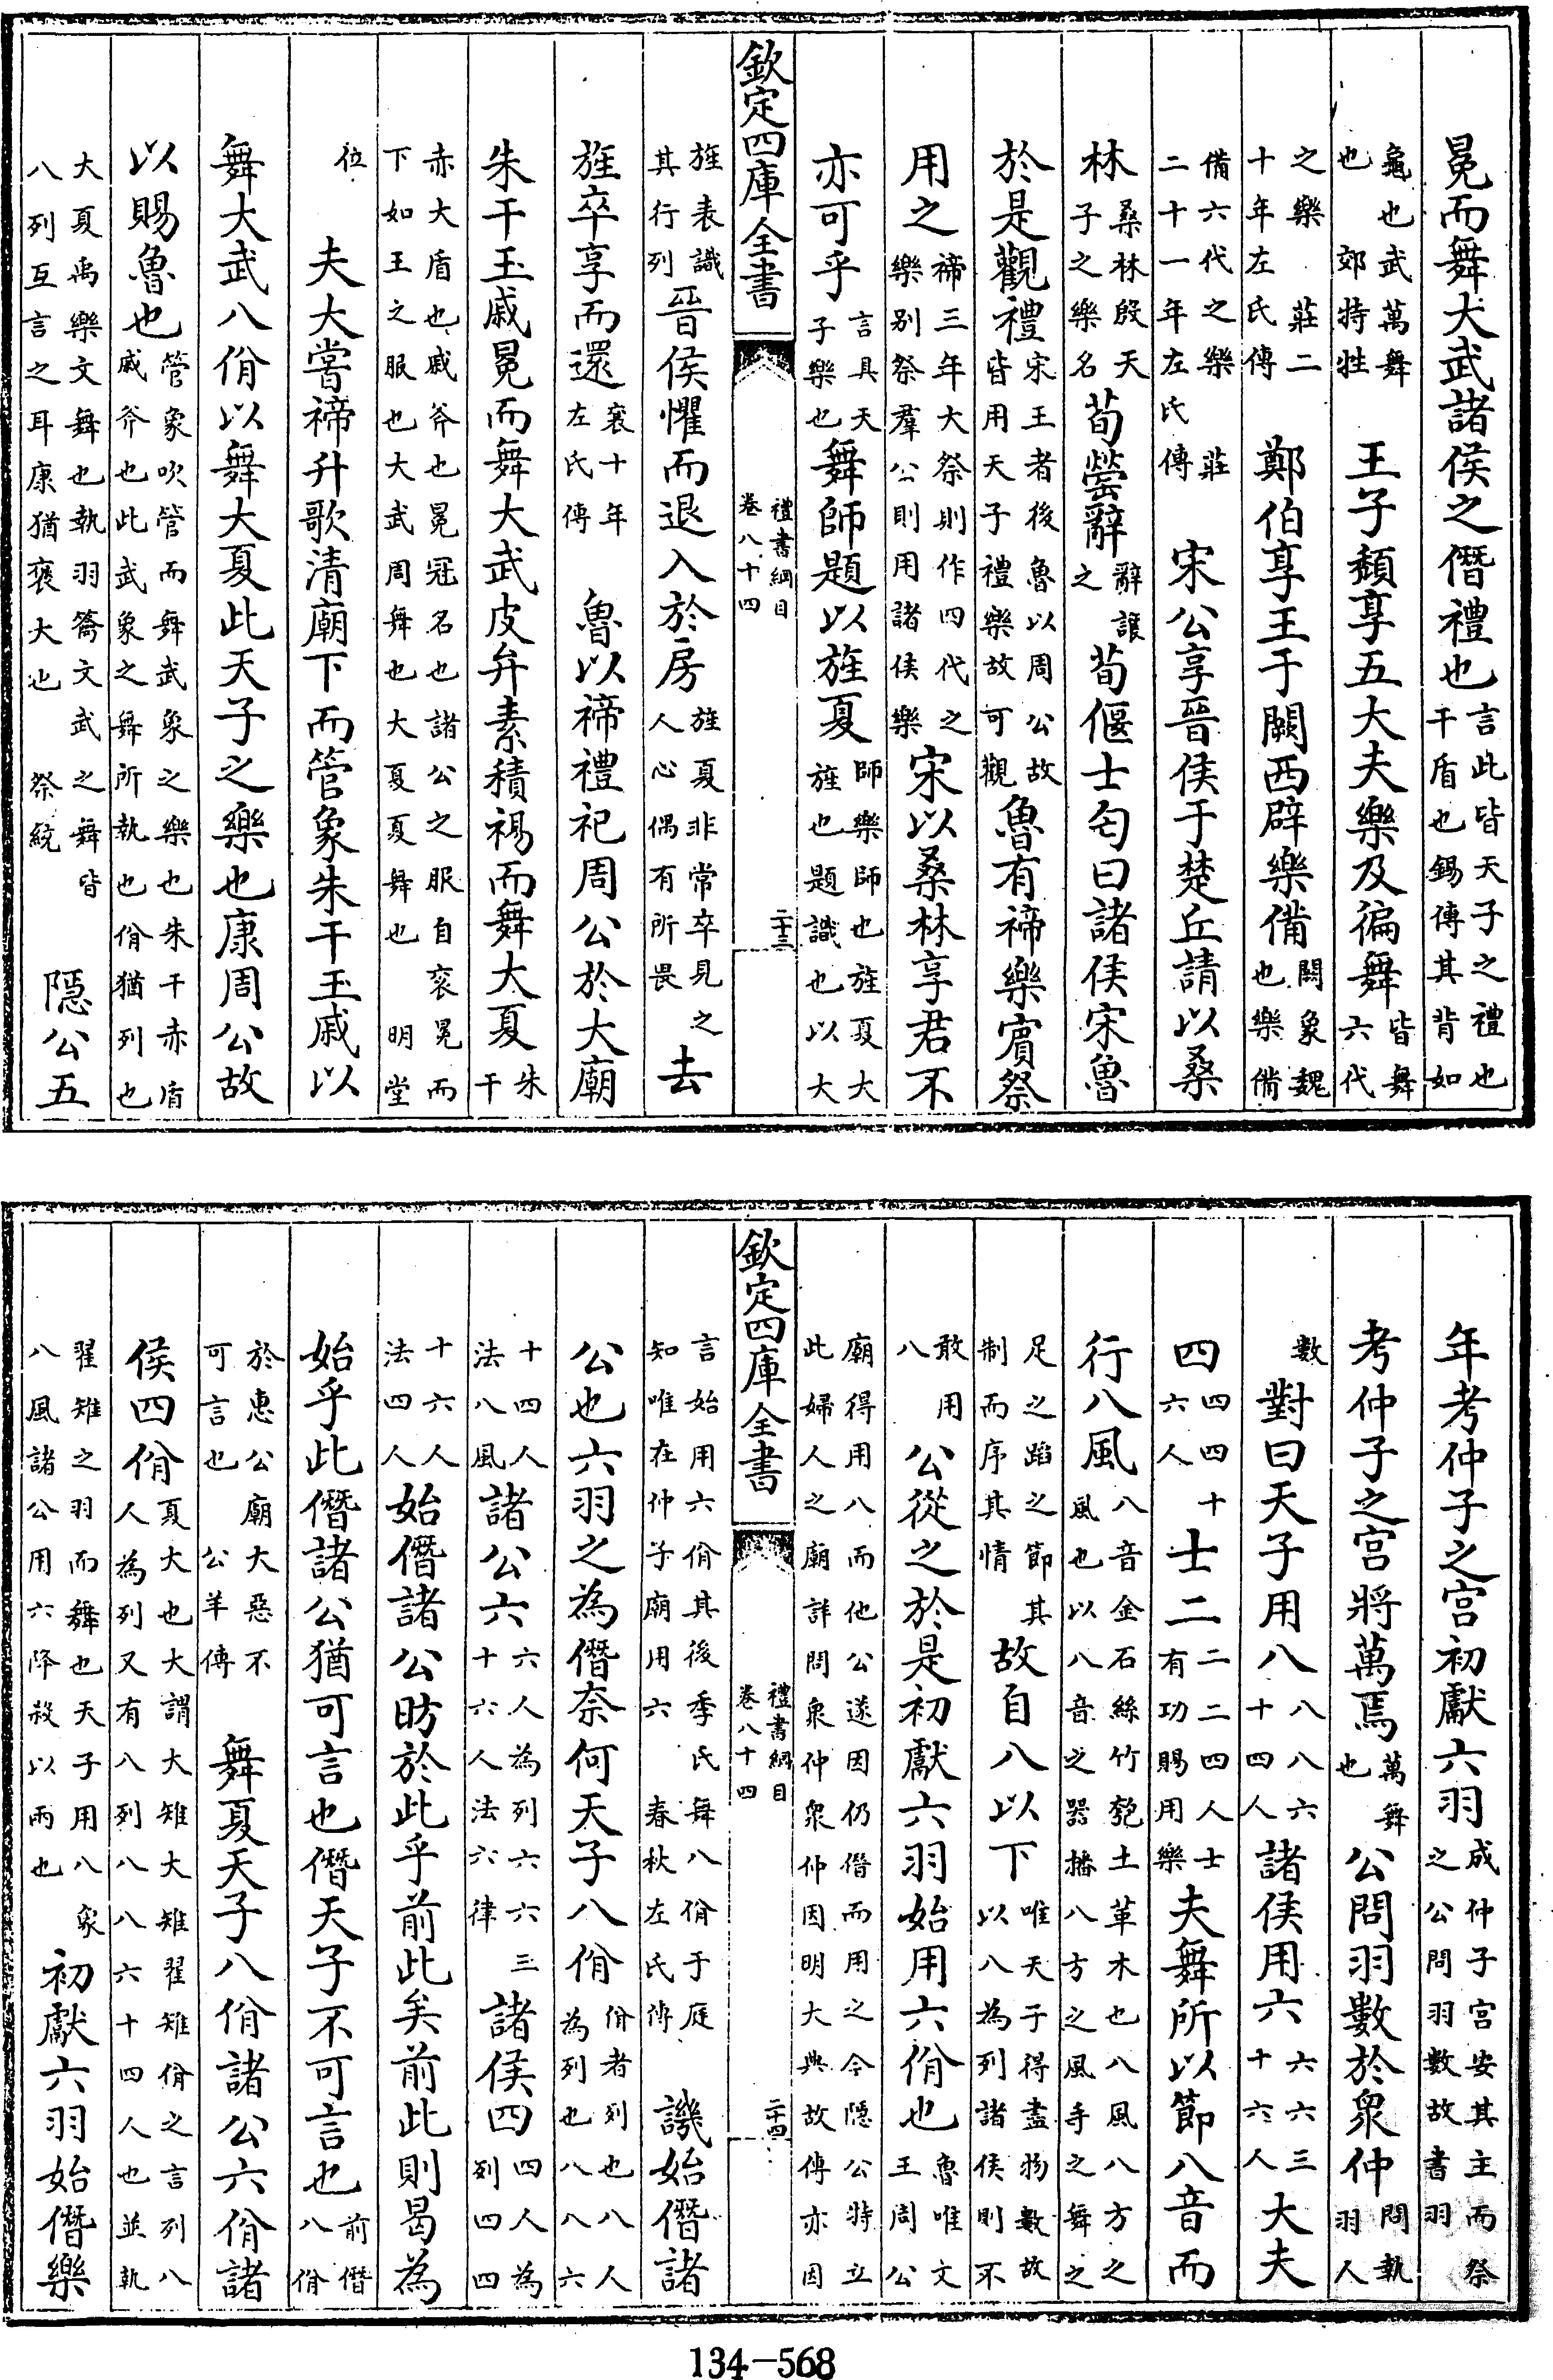 冕而舞大武諸侯之僭禮也言此皆天子之禮也干盾也錫傅其背如
龜也武萬舞也　郊特牲　王子頽享五大夫樂及徧舞皆舞六代
之樂　莊二十年左氏傳　鄭伯享王于闕西辟樂備闕象魏也樂備
備六代之樂　莊二十一年左氏傳　宋公享晉侯于楚丘請以桑
林桑林殷天子之樂名荀罃辭辭讓之荀偃士匄曰諸侯宋魯
於是觀禮宋王者後魯以周公故皆用天子禮樂故可觀魯有禘樂賓祭
用之禘三年大祭則作四代之樂別祭羣公則用諸侯樂宋以桑林享君不
亦可乎言具天子樂也舞師題以旌夏師樂師也旌夏大旌也題識也以大
欽定四庫全書　禮書綱目　卷八十四　二十三
旌表識其行列晉侯懼而退入於房旌夏非常卒見之人心偶有所畏去
旌卒享而還襄十年左氏傳　魯以禘禮祀周公於大廟
朱干玉戚冕而舞大武皮弁素積裼而舞大夏朱干
赤大盾也戚斧也冕冠名也諸公之服自袞冕而下如王之服也大武周舞也大夏夏舞也　明堂
位　夫大嘗禘升歌清廟下而管象朱干玉戚以
舞大武八佾以舞大夏此天子之樂也康周公故
以賜魯也管象吹管而舞武象之樂也朱干赤盾戚斧也此武象之舞所執也佾猶列也
大夏禹樂文舞也執羽籥文武之舞皆八列互言之耳康猶襃大也　祭統　隱公五
年考仲子之宫初獻六羽成仲子宫安其主而祭之公問羽數故書羽
考仲子之宫將萬焉萬舞也公問羽數於衆仲問執羽人
數對曰天子用八八八六十四人諸侯用六六六三十六人大夫
四四四十六人士二二二四人士有功賜用樂夫舞所以節八音而
行八風八音金石絲竹匏土革木也八風八方之風也以八音之器播八方之風手之舞之
足之蹈之節其制而序其情故自八以下唯天子得盡物數故以八為列諸侯則不
敢用八公從之於是初獻六羽始用六佾也魯唯文王周公
廟得用八而他公遂因仍僭而用之今隱公特立此婦人之廟詳問衆仲衆仲因明大典故傳亦因
欽定四庫全書　禮書綱目　卷八十四　二十四
言始用六佾其後季氏舞八佾于庭知唯在仲子廟用六　春秋左氏傳　譏始僭諸
公也六羽之為僭奈何天子八佾佾者列也八人為列八八六
十四人法八風諸公六六人為列六六三十六人法六律諸侯四四人為列四四
十六人法四人始僭諸公昉於此乎前此矣前此則曷為
始乎此僭諸公猶可言也僭天子不可言也前僭八佾
於惠公廟大惡不可言也　公羊傳　舞夏天子八佾諸公六佾諸
侯四佾夏大也大謂大雉大雉翟雉佾之言列八人為列又有八列八八六十四人也並執
翟雉之羽而舞也天子用八象八風諸公用六降殺以兩也初獻六羽始僭樂
134-568